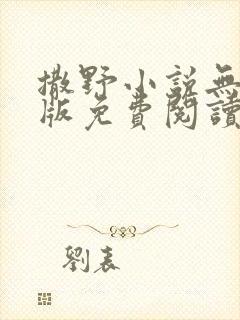 撒野小說無
版免費閱讀
劉表